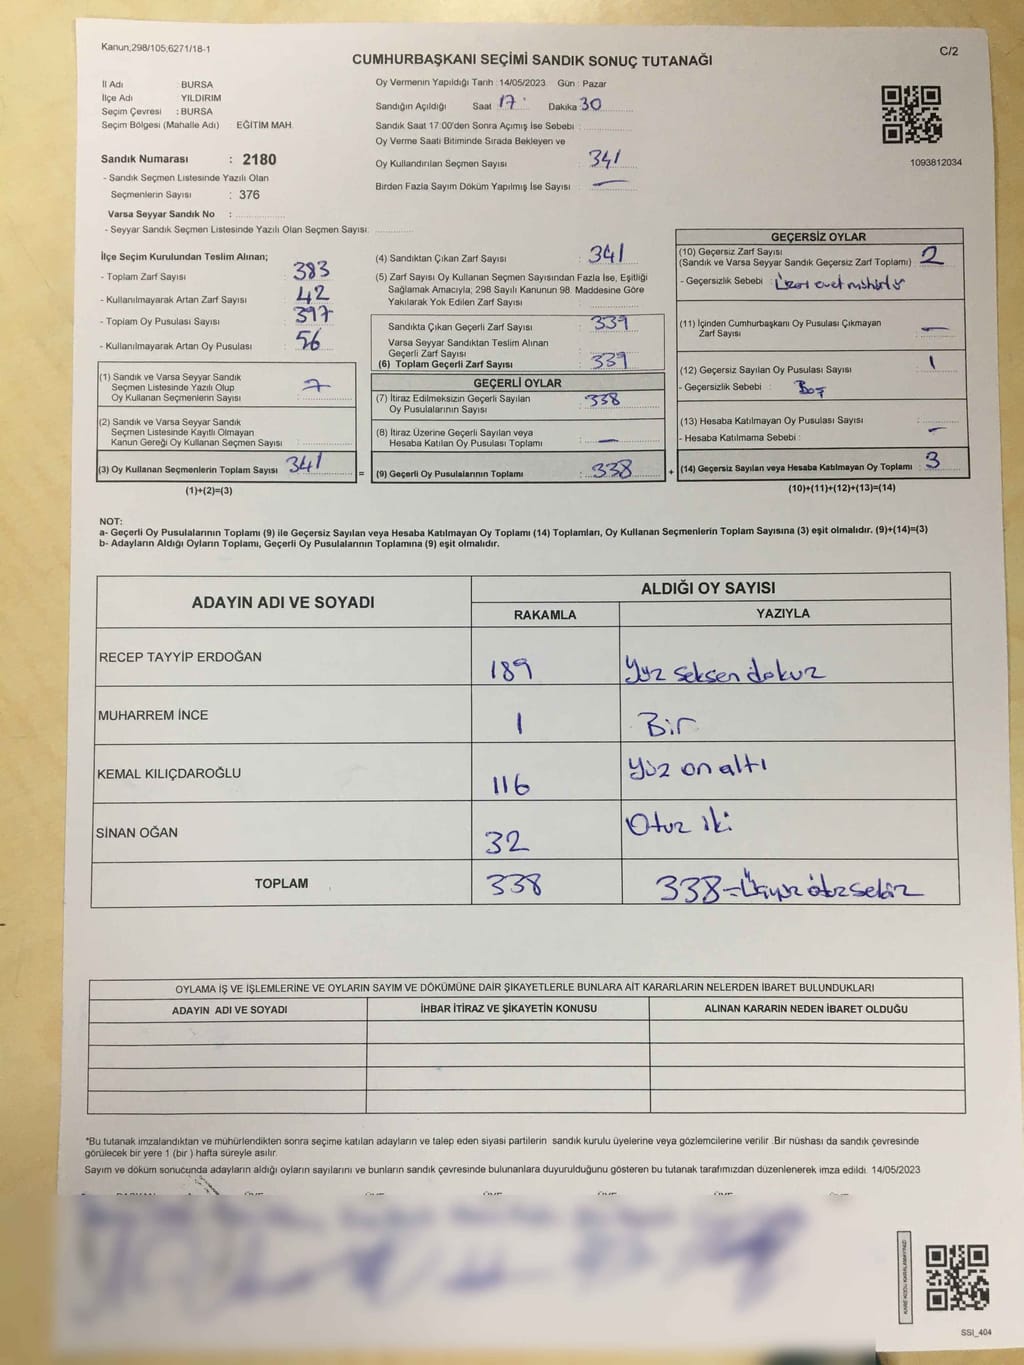 Kanun,298/105,6271/18-1
C/2
CUMHURBAŞKANI SEÇİMİ SANDIK SONUÇ TUTANAĞI
İl Adı : BURSA
İlçe Adı YILDIRIM
Seçim Çevresi : BURSA
Seçim Bölgesi (Mahalle Adı) EĞİTİM MAH.
Sandık Numarası : 2180
- Sandık Seçmen Listesinde Yazılı Olan
Seçmenlerin Sayısı : 376
Varsa Seyyar Sandık No :
- Seyyar Sandık Seçmen Listesinde Yazılı Olan Seçmen Sayısı:
Oy Vermenin Yapıldığı Tarih : 14/05/2023 Gün : Pazar
Sandığın Açıldığı Saat 17 : Dakika 30
Sandık Saat 17:00'den Sonra Açımış İse Sebebi :
Oy Verme Saati Bitiminde Sırada Bekleyen ve
Oy Kullandırılan Seçmen Sayısı : 341
Birden Fazla Sayım Döküm Yapılmış İse Sayısı : —
1093812034
İlçe Seçim Kurulundan Teslim Alınan;
- Toplam Zarf Sayısı : 383
- Kullanılmayarak Artan Zarf Sayısı : 42
- Toplam Oy Pusulası Sayısı : 397
- Kullanılmayarak Artan Oy Pusulası : 56
(1) Sandık ve Varsa Seyyar Sandık
Seçmen Listesinde Yazılı Olup
Oy Kullanan Seçmenlerin Sayısı : 7
(2) Sandık ve Varsa Seyyar Sandık
Seçmen Listesinde Kayıtlı Olmayan
Kanun Gereği Oy Kullanan Seçmen Sayısı :
(3) Oy Kullanan Seçmenlerin Toplam Sayısı : 341
(1)+(2)=(3)
(4) Sandıktan Çıkan Zarf Sayısı : 341
(5) Zarf Sayısı Oy Kullanan Seçmen Sayısından Fazla İse, Eşitliği
Sağlamak Amacıyla; 298 Sayılı Kanunun 98. Maddesine Göre
Yakılarak Yok Edilen Zarf Sayısı :
Sandıkta Çıkan Geçerli Zarf Sayısı : 339
Varsa Seyyar Sandıktan Teslim Alınan
Geçerli Zarf Sayısı :
(6) Toplam Geçerli Zarf Sayısı : 339
GEÇERLİ OYLAR
(7) İtiraz Edilmeksizin Geçerli Sayılan
Oy Pusulalarının Sayısı : 338
(8) İtiraz Üzerine Geçerli Sayılan veya
Hesaba Katılan Oy Pusulası Toplamı : —
= (9) Geçerli Oy Pusulalarının Toplamı : 338 +
GEÇERSİZ OYLAR
(10) Geçersiz Zarf Sayısı
(Sandık ve Varsa Seyyar Sandık Geçersiz Zarf Toplamı) : 2
- Geçersizlik Sebebi : Üzeri evet
(11) İçinden Cumhurbaşkanı Oy Pusulası Çıkmayan
Zarf Sayısı : —
(12) Geçersiz Sayılan Oy Pusulası Sayısı : 1
- Geçersizlik Sebebi : Boş
(13) Hesaba Katılmayan Oy Pusulası Sayısı : —
- Hesaba Katılmama Sebebi :
(14) Geçersiz Sayılan veya Hesaba Katılmayan Oy Toplamı : 3
(10)+(11)+(12)+(13)=(14)
NOT:
a- Geçerli Oy Pusulalarının Toplamı (9) ile Geçersiz Sayılan veya Hesaba Katılmayan Oy Toplamı (14) Toplamları, Oy Kullanan Seçmenlerin Toplam Sayısına (3) eşit olmalıdır. (9)+(14)=(3)
b- Adayların Aldığı Oyların Toplamı, Geçerli Oy Pusulalarının Toplamına (9) eşit olmalıdır.
ADAYIN ADI VE SOYADI
ALDIĞI OY SAYISI
RAKAMLA YAZIYLA
RECEP TAYYİP ERDOĞAN 189 Yüz seksen dokuz
MUHARREM İNCE 1 Bir
KEMAL KILIÇDAROĞLU 116 Yüz on altı
SİNAN OĞAN 32 Otuz iki
TOPLAM 338 338=Üçyüz otuz sekiz
OYLAMA İŞ VE İŞLEMLERİNE VE OYLARIN SAYIM VE DÖKÜMÜNE DAİR ŞİKAYETLERLE BUNLARA AİT KARARLARIN NELERDEN İBARET BULUNDUKLARI
ADAYIN ADI VE SOYADI İHBAR İTİRAZ VE ŞİKAYETİN KONUSU ALINAN KARARIN NEDEN İBARET OLDUĞU
*Bu tutanak imzalandıktan ve mühürlendikten sonra seçime katılan adayların ve talep eden siyasi partilerin sandık kurulu üyelerine veya gözlemcilerine verilir .Bir nüshası da sandık çevresinde
görülecek bir yere 1 (bir ) hafta süreyle asılır.
Sayım ve döküm sonucunda adayların aldığı oyların sayılarını ve bunların sandık çevresinde bulunanlara duyurulduğunu gösteren bu tutanak tarafımızdan düzenlenerek imza edildi. 14/05/2023
KARE KODU KARALAMAYINIZ!
SSI_404